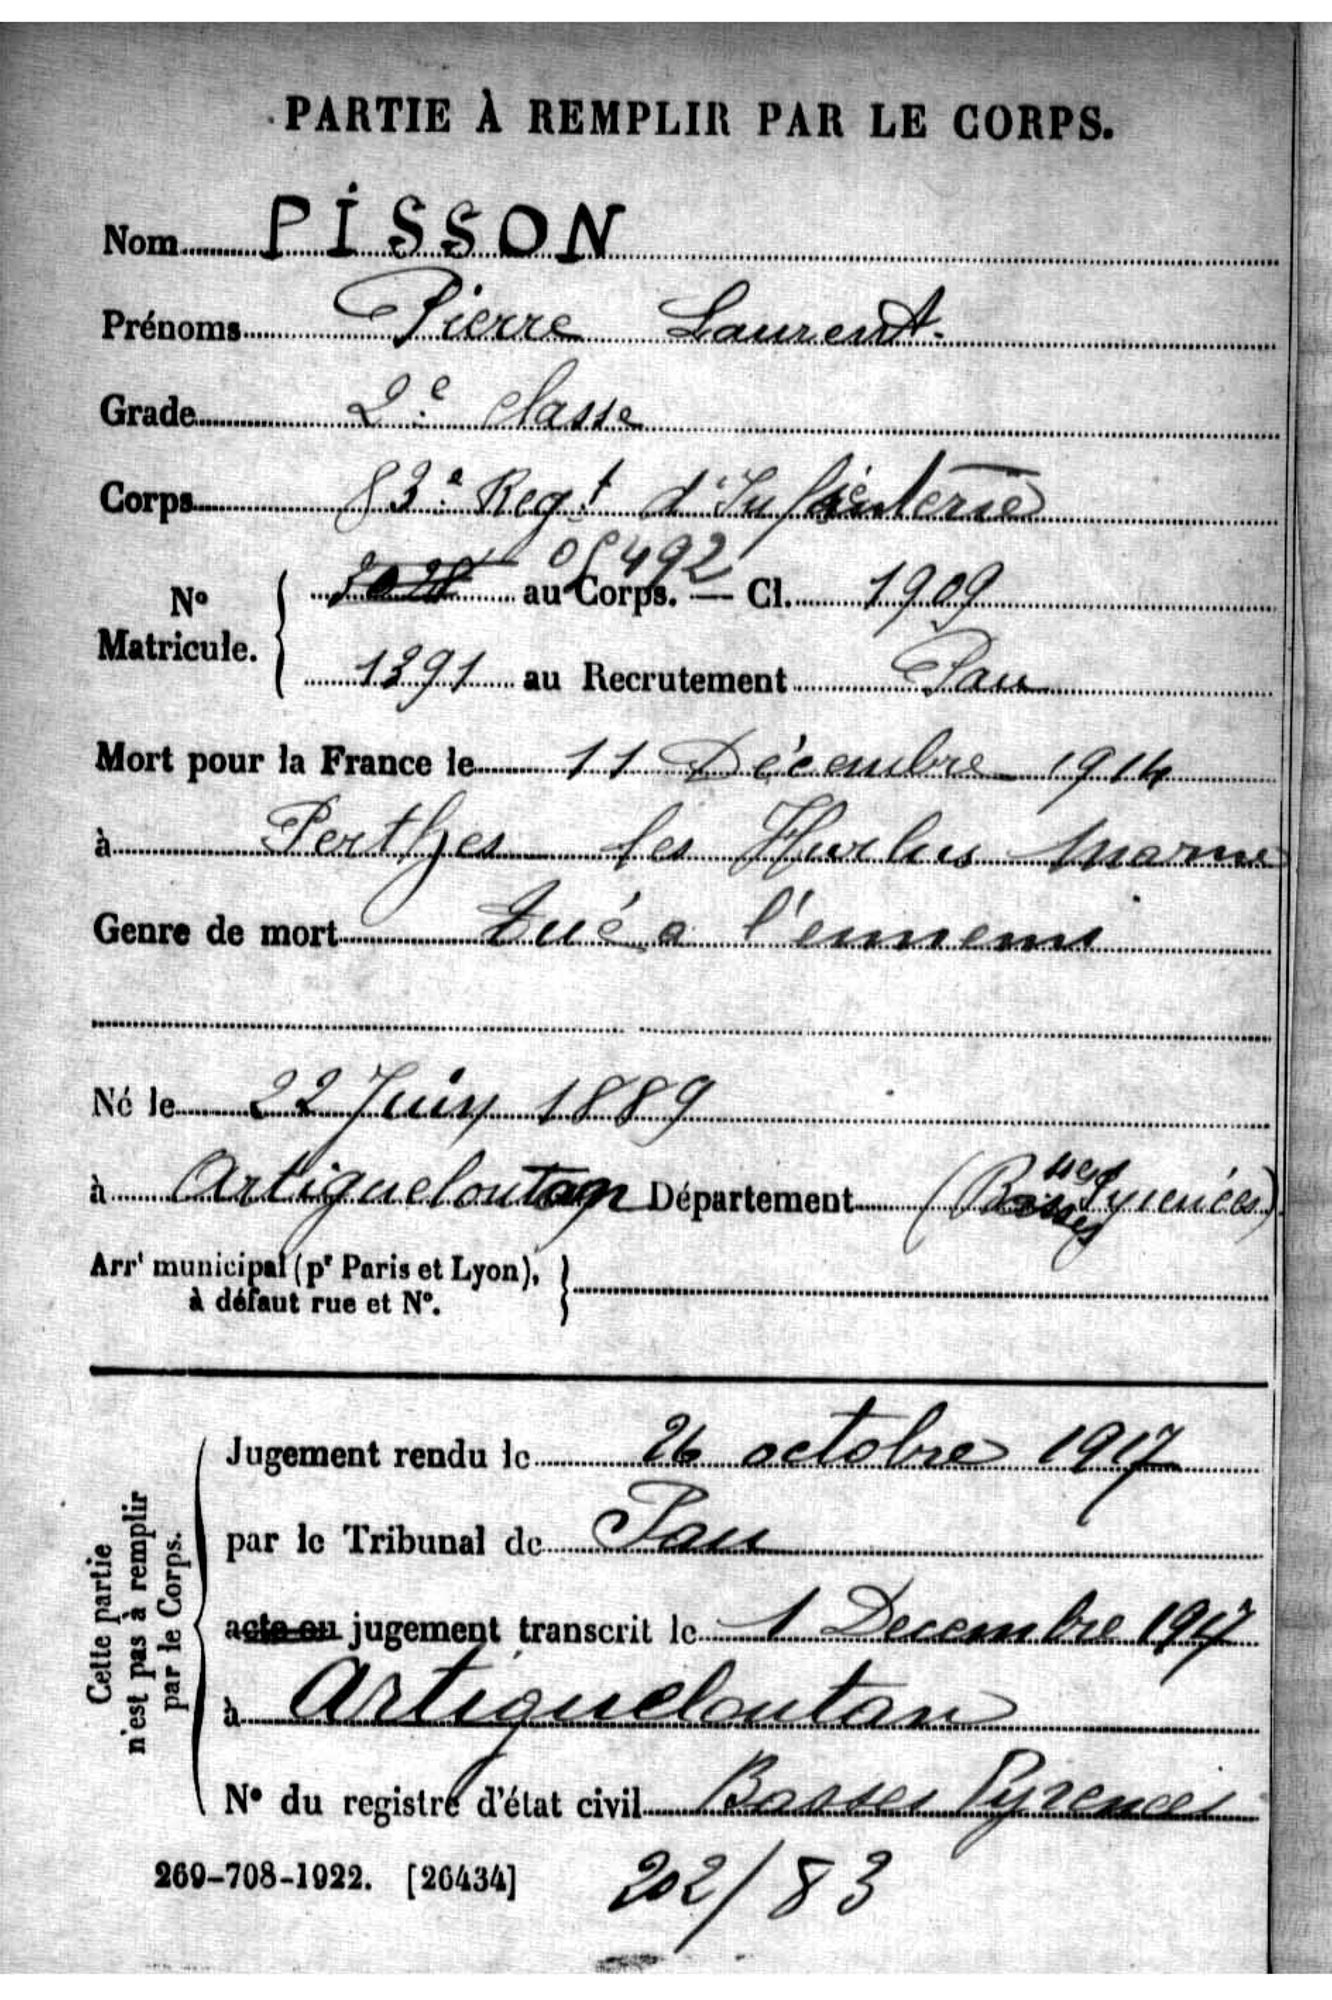 PARTIE À REMPLIR PAR LE CORPS.
Nom PISSON
Prénoms Pierre Laurent.
Grade 2e classe
Corps 83e Regt d'Infanterie
05492
No Matricule. { 3028 au Corps. — Cl. 1909
1391 au Recrutement Pau
Mort pour la France le 11 Décembre 1914
à Perthes les Hurlus Marne
Genre de mort tué a l'ennemi
Né le 22 Juin 1889
à Artigueloutan Département (Basses Pyrenées)
Arrt municipal (pr Paris et Lyon), }
à défaut rue et No.
Cette partie
n'est pas à remplir
par le Corps.
Jugement rendu le 26 octobre 1917
par le Tribunal de Pau
acte ou jugement transcrit le 1 Decembre 1917
à Artigueloutan
No du registre d'état civil Basses Pyrenees
269-708-1922. [26434] 202/83